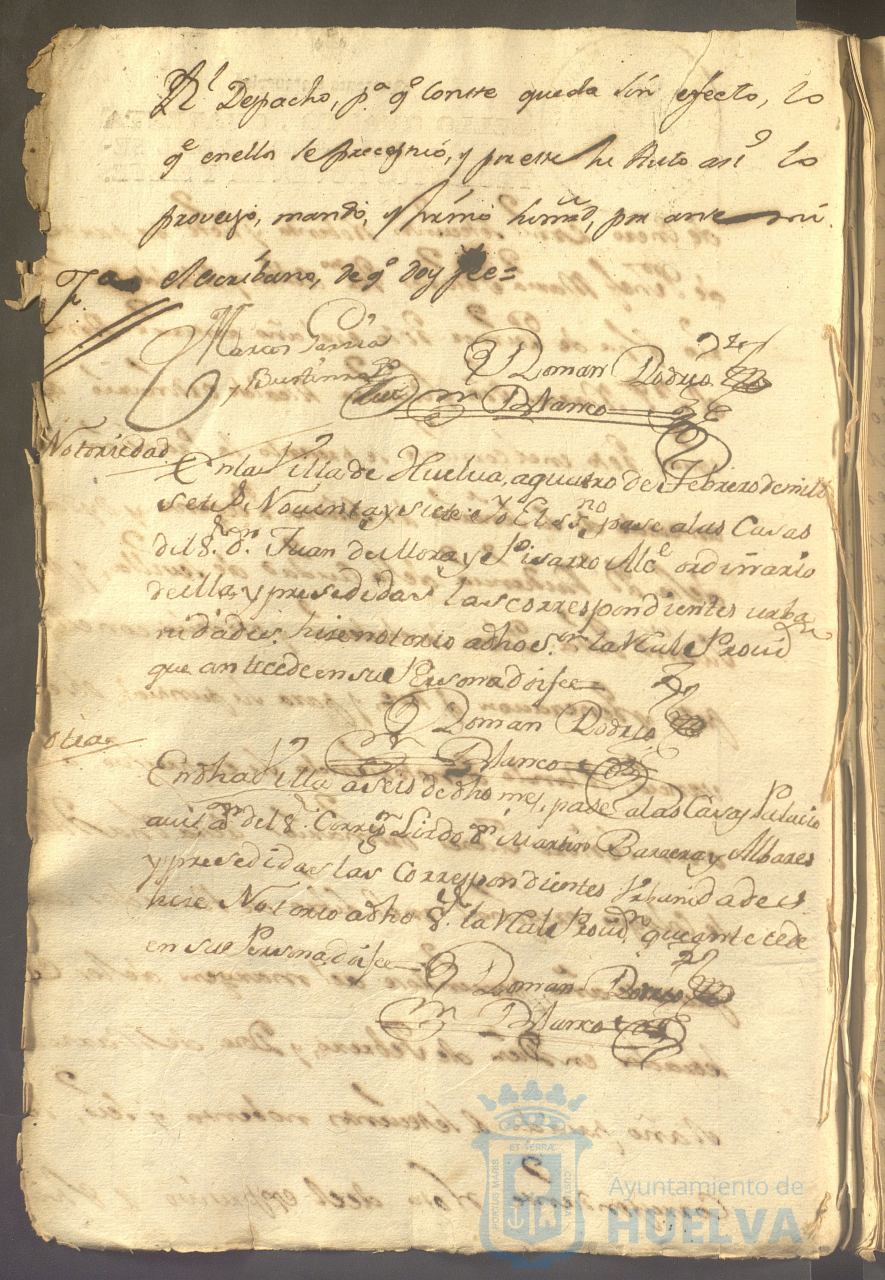 Rl Despacho, pa. qe. Conste queda sin efecto, lo
qe. en ella se precepuó, y por este su Auto asi lo
proveyo, mandó, y firmó su mrd, por ante mi
el escribano, de qe. doy fee=
Marcos Garcia
y Bustamte
Roman Rodrigz
Blanco
Notoriedad
En la Villa de Huelva, a quatro de Febrero de mil
setets. Noventa y siete: Yo El ssno. pase a las Casas
del Sr. Dn. Juan de Mora, y Pisarro Alce. ordinario
de illa, y presedidas las correspondientes urba
nidades, hise notorio a dho sor. la Real Provid
que antecede en su Persona doi fee
Roman Rodrigz
Blanco
otra
En dha Villa a seis de dho mes, pase a las Casas Palacio
avitaon. del Sr. Corregr. Licdo Dn. Martin Barrera y Albares
y presedidas las Correspondientes Urbanidades
hise Notorio a dho Sr. la Real Provida. que antecede
en su Persona doi fee
Roman Rodrigz
Blanco
Ayuntamiento de
HUELVA